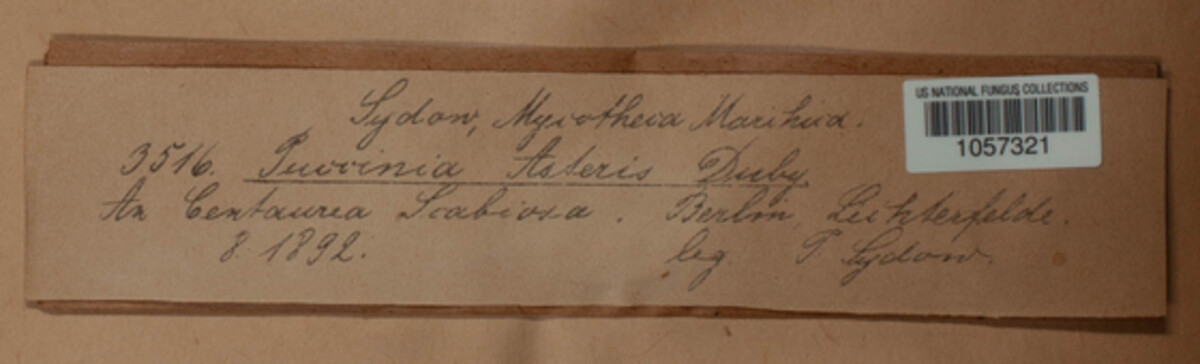 Sydow, Mycotheca Marchica.
US NATIONAL FUNGUS COLLECTIONS
1057321
3516. Puccinia Asteris Duby
An Centaurea Scabiosa. Berlin, Lichterfelde.
8. 1892. leg. P. Sydow.